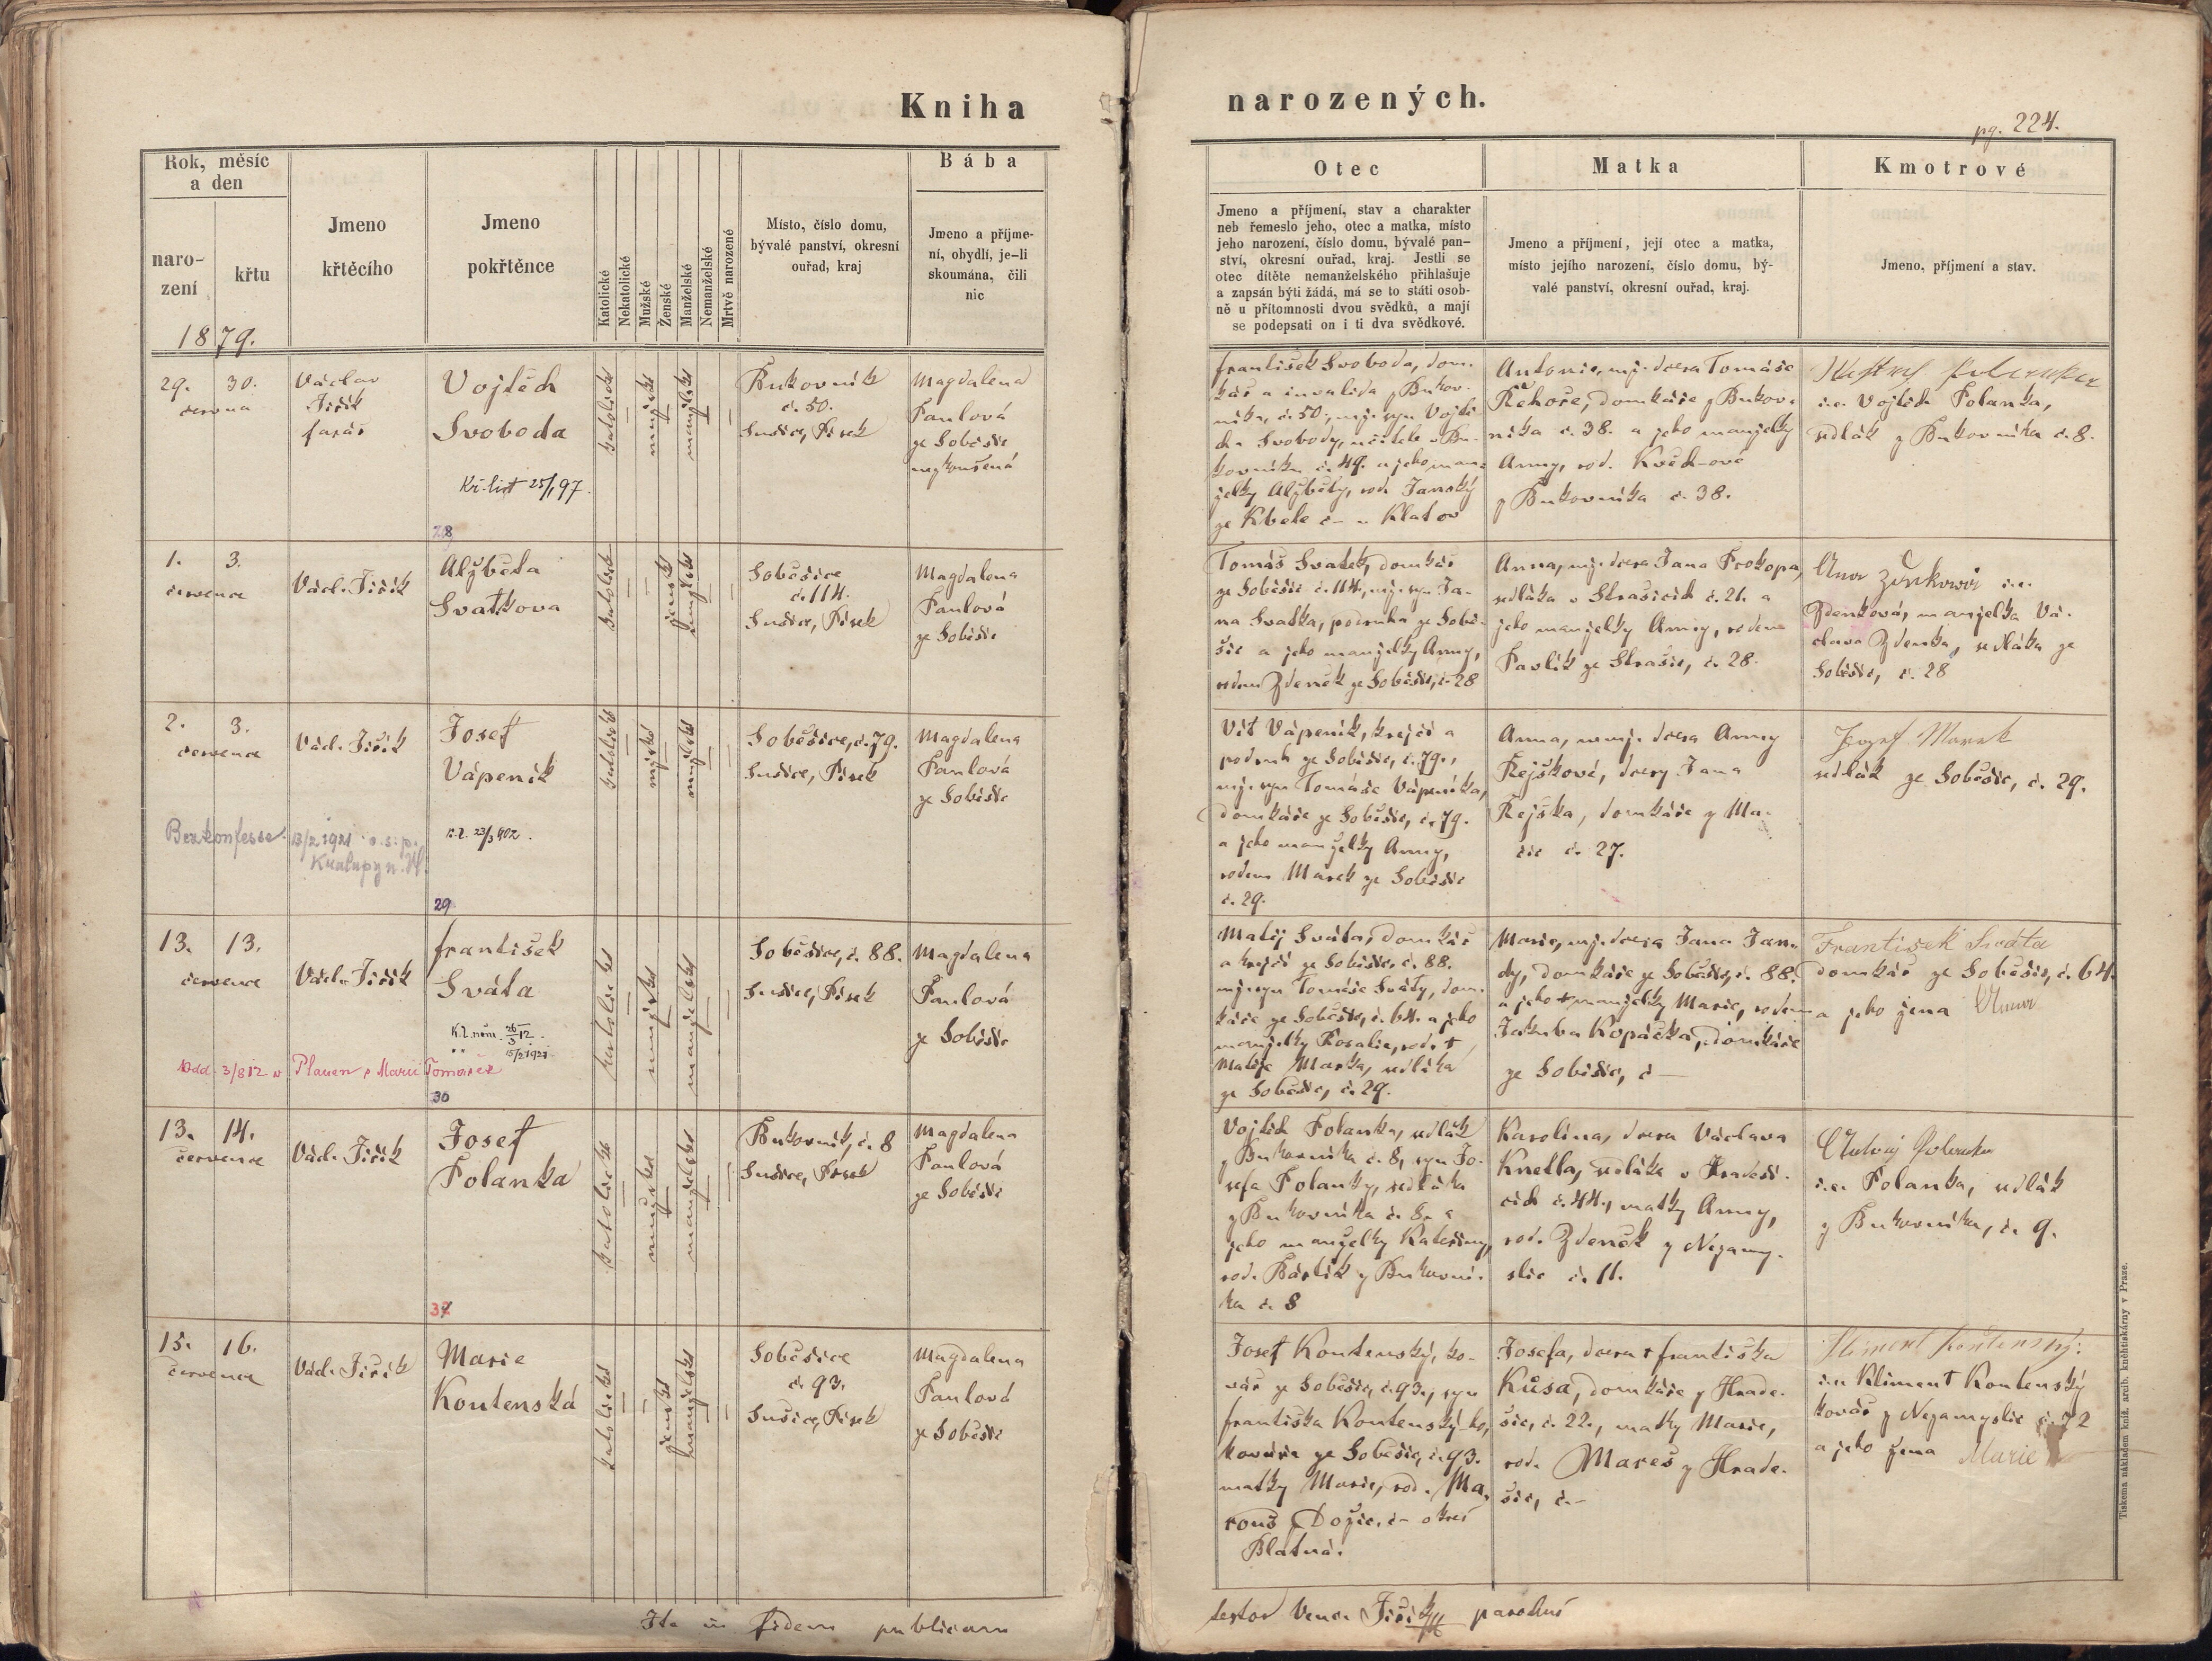 Kniha
narozených.
pg. 224.
Rok, měsíc
a den
naro-
zení
křtu
1879.
Jmeno
křtěcího
Jmeno
pokřtěnce
Katolické
Nekatolické
Mužské
Ženské
Manželské
Nemanželské
Mrtvě narozené
Místo, číslo domu,
bývalé panství, okresní
ouřad, kraj
Bába
Jmeno a příjme-
ní, obydlí, je-li
skoumána, čili
nic
Otec
Jmeno a příjmení, stav a charakter
neb řemeslo jeho, otec a matka, místo
jeho narození, číslo domu, bývalé pan-
ství, okresní ouřad, kraj. Jestli se
otec dítěte nemanželského přihlašuje
a zapsán býti žádá, má se to státi osob-
ně u přítomnosti dvou svědků, a mají
se podepsati on i ti dva svědkové.
Matka
Jmeno a příjmení, její otec a matka,
místo jejího narození, číslo domu, bý-
valé panství, okresní ouřad, kraj.
Kmotrové
Jmeno, příjmení a stav.
29. 30.
června
Václav
Jiřík
farář
Vojtěch
Svoboda
Kř. list 25/1 97.
28
katolické
mužské
manželské
Bukovník
č. 50.
Sušice, Písek
Magdalena
Paulová
ze Soběšic
nezkoušená
František Svoboda, dom-
kář a invalida z Bukov-
níka, č. 50, mž. syn Vojtě-
cha Svobody, učitele v Bu-
kovníku č. 49. a jeho man-
želky Alžběty, rod. Janský
ze Kbele č – u Klatov
Antonie, mž. dcera Tomáše
Řehoře, domkáře z Bukov-
níka č. 38. a jeho manželky
Anny, rod. Květ-ové
z Bukovníka č. 38.
i.e. Vojtěch Polanka,
sedlák z Bukovníka č. 8.
1. 3.
července
Václ. Jiřík
Alžběta
Svatkova
katolické
ženské
manželské
Soběšice
č. 114.
Sušice, Písek
Magdalena
Paulová
ze Soběšic
Tomáš Svatek, domkář
ze Soběšic č. 114, mž. syn Ja-
na Svatka, podruha ze Sobě-
šic a jeho manželky Anny,
rodem Zdeněk ze Soběšic, č. 28
Anna, mž. dcera Jana Prokopa,
sedláka v Strašicích č. 21. a
jeho manželky Anny, rodem
Pavlík ze Strašic, č. 28.
i.e.
Zdenková, manželka Vá-
clava Zdenka, sedláka ze
Soběšic, č. 28
2. 3.
července
Václ. Jiřík
Josef
Vápeník
K.l. 23/3 902.
Bez konfesse. 13/2 1921 o.s.p.
Kralupy n. Vl.
29
katolické
mžské
manželské
Soběšice, č. 79.
Sušice, Písek
Magdalena
Paulová
ze Soběšic
Vít Vápeník, krejčí a
podruh ze Soběšic, č. 79.,
mž. syn Tomáše Vápeníka,
domkáře ze Soběšic, č. 79.
a jeho manželky Anny,
rodem Marek ze Soběšic
č. 29.
Anna, nemž. dcera Anny
Řejškové, dcery Jana
Řejška, domkáře z Ma-
čic č. 27.
Jozef Marek
sedlák ze Soběšic, č. 29.
13. 13.
července
Václ. Jiřík
František
Sváta
K.l. něm. 26/3 12.
15/2 1921
Odd. 3/8 12 v Plauen s Marií
30
katolické
mužské
manželské
Soběšice, č. 88.
Sušice, Písek
Magdalena
Paulová
ze Soběšic
Matěj Sváta, domkář
a krejčí ze Soběšic č. 88.
mž. syn Tomáše Sváty, dom-
káře ze Soběšic, č. 64. a jeho
manželky Rosalie, rod. †
Matěje Marka, sedláka
ze Soběšic, č. 29.
Marie, mž. dcera Jana Jan-
dy, domkáře ze Soběšic, č. 88.
a jeho † manželky Marie, rodem
Jakuba Kopáčka, domkáře
ze Soběšic, č –
František Sváta
domkář ze Soběšic, č. 64.
a jeho žena Anna
13. 14.
července
Václ. Jiřík
Josef
Polanka
katolické
mužské
manželské
Bukovník, č. 8
Sušice, Písek
Magdalena
Paulová
ze Soběšic
Vojtěch Polanka, sedlák
z Bukovníka č. 8, syn Jo-
sefa Polanky, sedláka
z Bukovníka č. 8. a
jeho manželky Kateřiny,
rod. Bártík z Bukovní-
ka č. 8
Karolina, dcera Václava
Knetla, sedláka v Hradeši-
cích č. 44., matky Anny,
rod. Zdeněk z Nezamy-
slic č. 11.
i.e. Polanka, sedlák
z Bukovníka, č. 9.
15. 16.
července
Václ. Jiřík
Marie
Koutenská
katolické
ženské
manželské
Soběšice
č. 93.
Sušice, Písek
Magdalena
Paulová
ze Soběšic
Josef Koutenský, ko-
vář ze Soběšic, č. 93., syn
Františka Koutenský-ho,
kováře ze Soběšic, č. 93.
matky Marie, rod. Ma-
rouš z Dožic, č – okres
Blatná.
Josefa, dcera † Františka
Kůsa, domkáře z Hrade-
šic, č. 22., matky Marie,
rod. Mareš z Hrade-
šic, č. –
i.e. Kliment Koutenský
kovář z Nezamyslic č. 72
a jeho žena Marie
Ita in fidem publicam
testor Venc. Jiřík parochus
Tiskem a nákladem kníž. arcib. knihtiskárny v Praze.